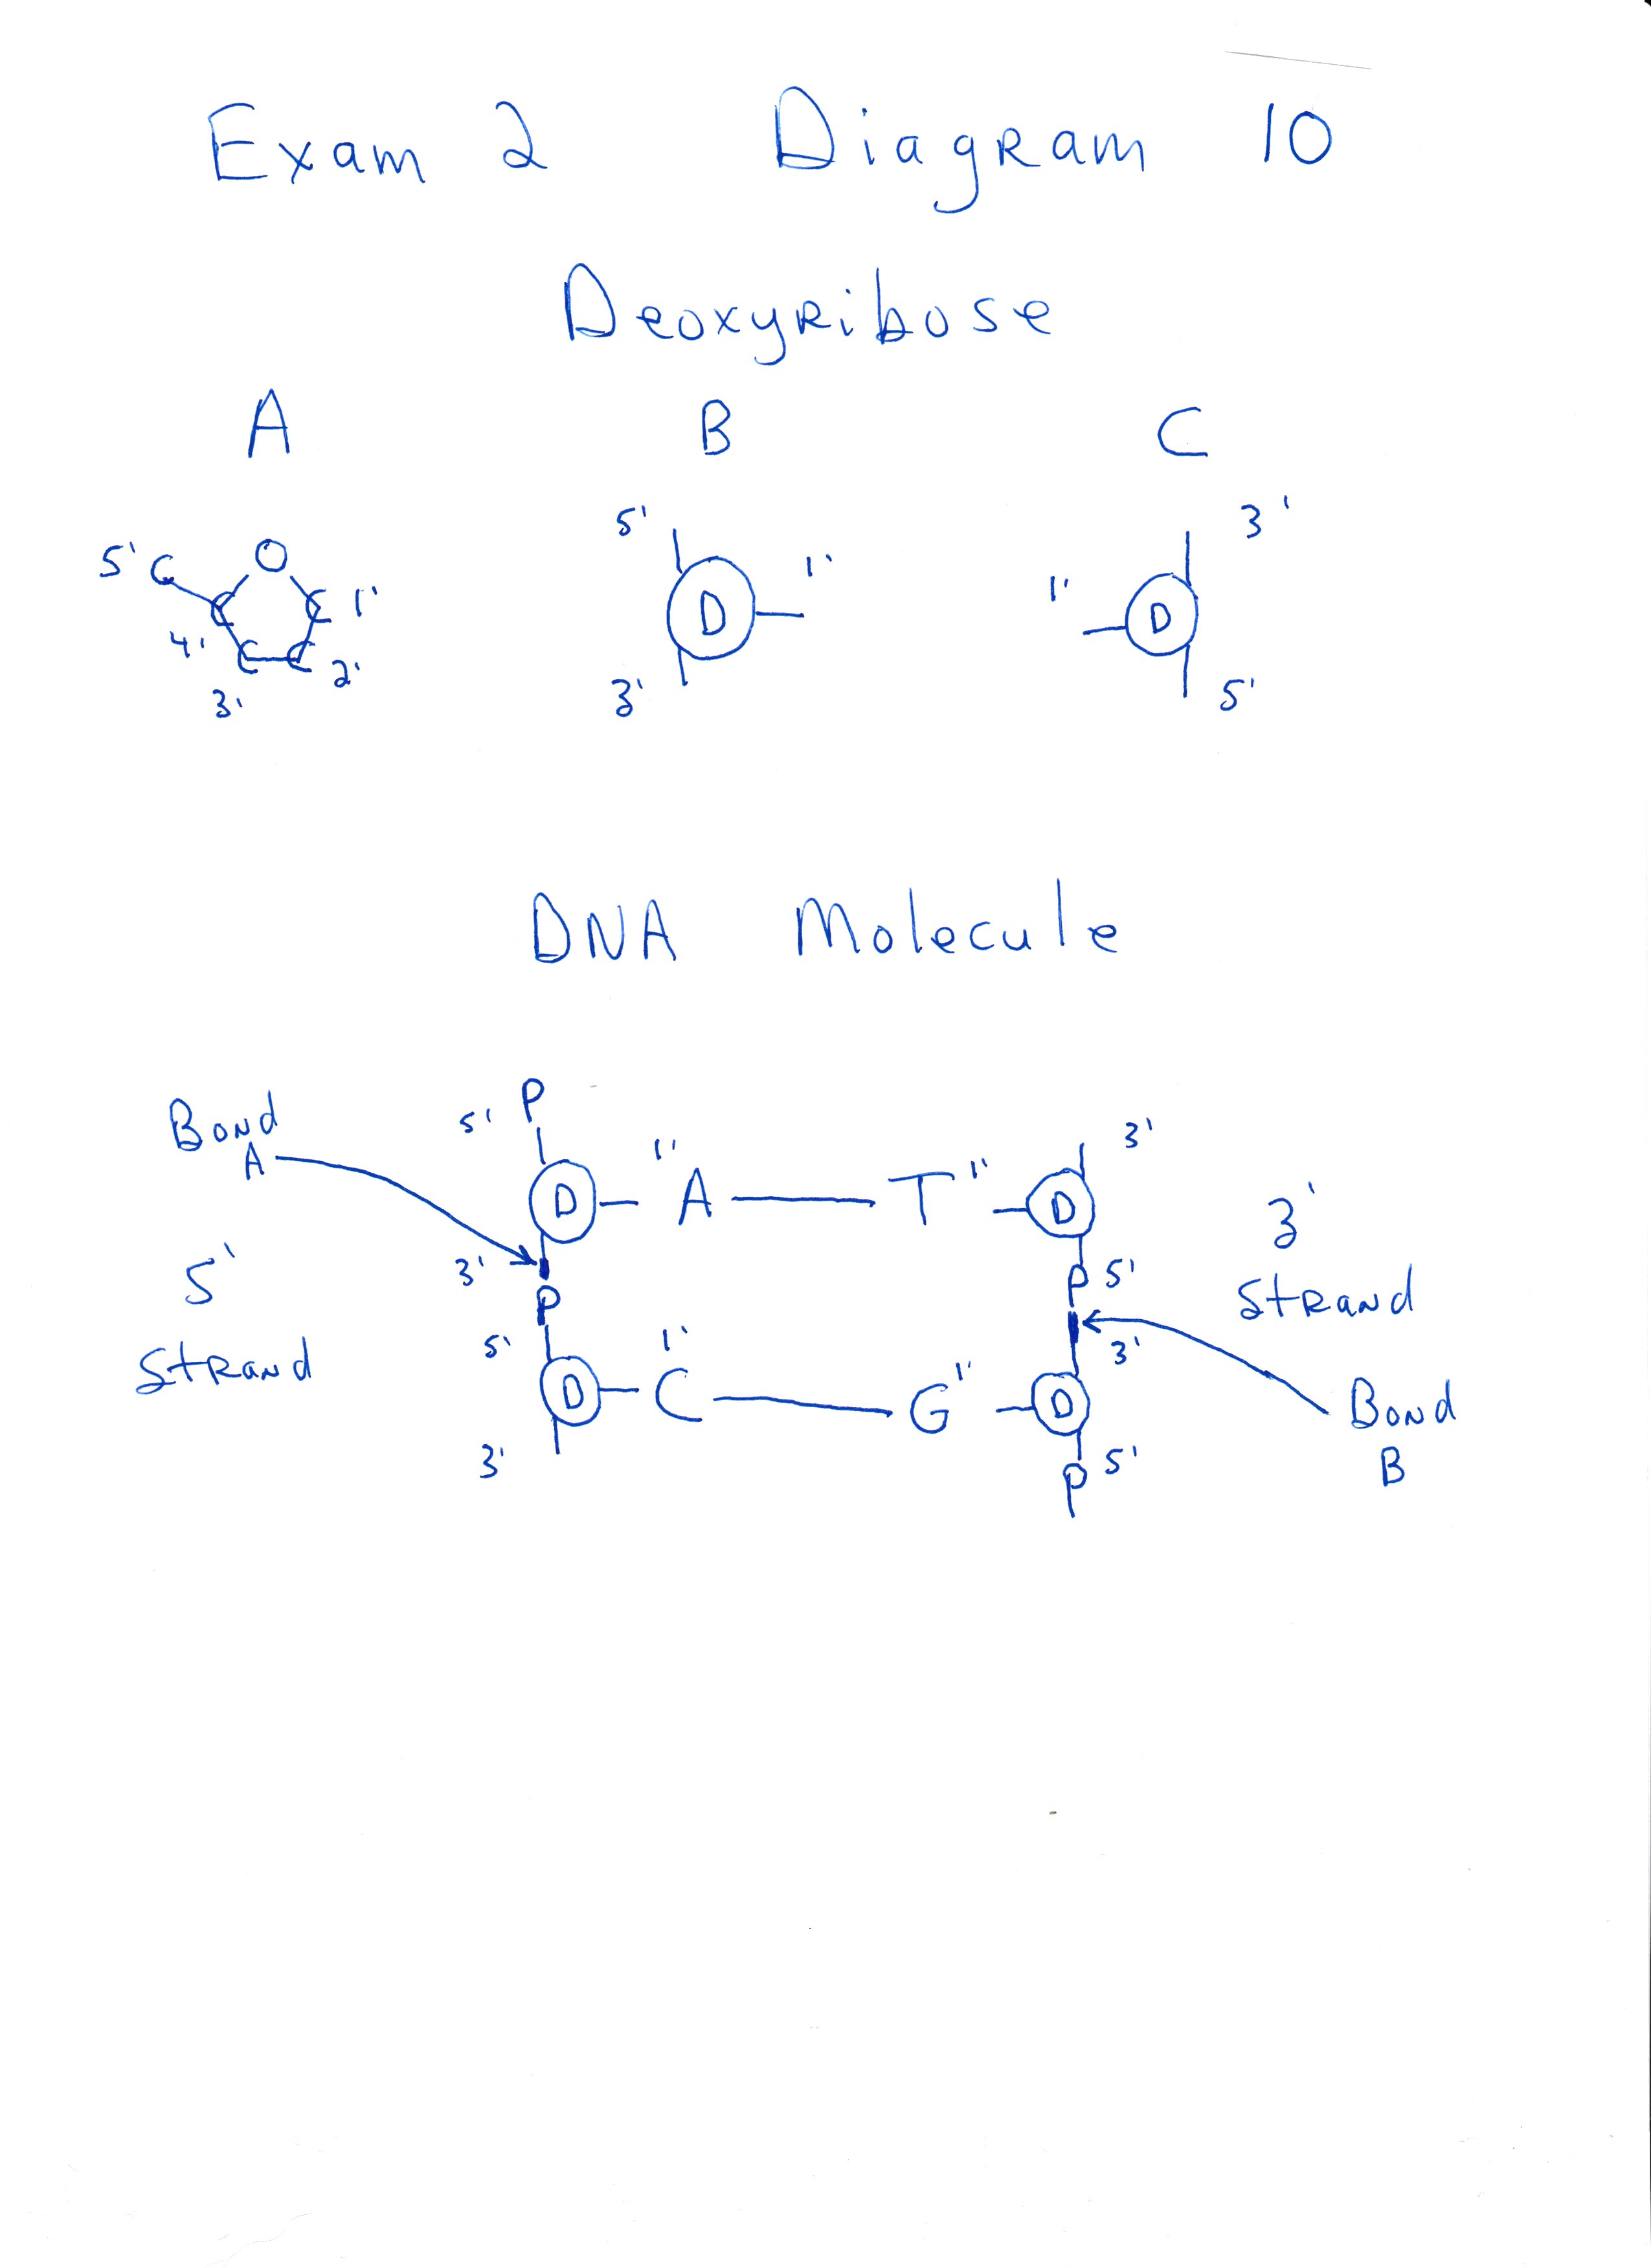 Exam 2 Diagram 10
Deoxyribose
A B C
5' 1' 3'
5' C O C 1' 1'
D D
4' C C C 2'
3' 3' 5'
DNA Molecule
Bond A
5' P
1' 1' 3'
D A T D
3'
5' Strand
3' Strand
3' P
P 5'
5' 1' 3'
D C G 1' D
3' P 5'
Bond B